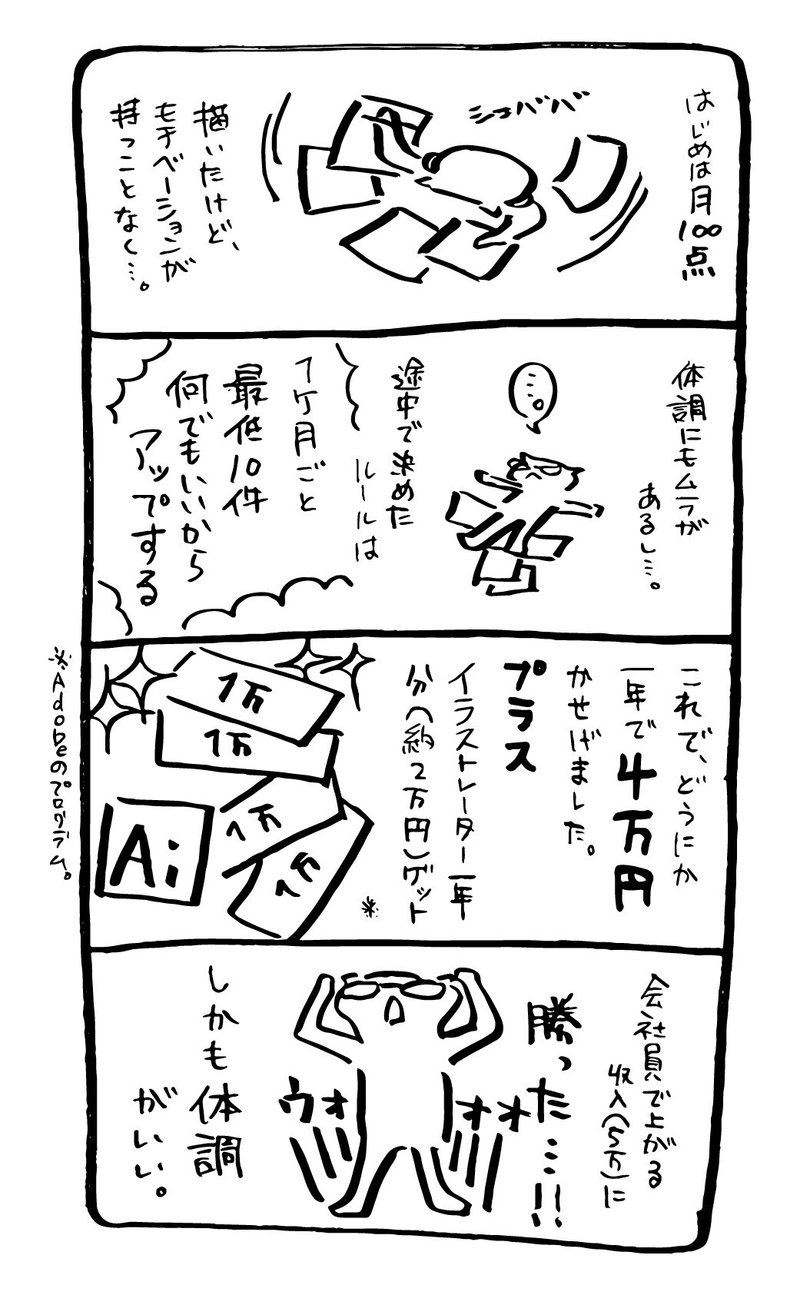 はじめは月100点
シュババババ
描いたけど、
モチベーションが
持つことなく…。
体調にもムラが
あるし…。
…。
途中で決めた
ルールは
1ヶ月ごと
最低10件
何でもいいから
アップする
これで、どうにか
一年で4万円
かせげました。
プラス
イラストレーター一年
分(約2万円)ゲット
※
1万
1万
1万
1万
Ai
※Adobeのプログラム。
会社員で上がる
収入(5万)に
勝った…!!
ウォォォ
しかも体調
がいい。